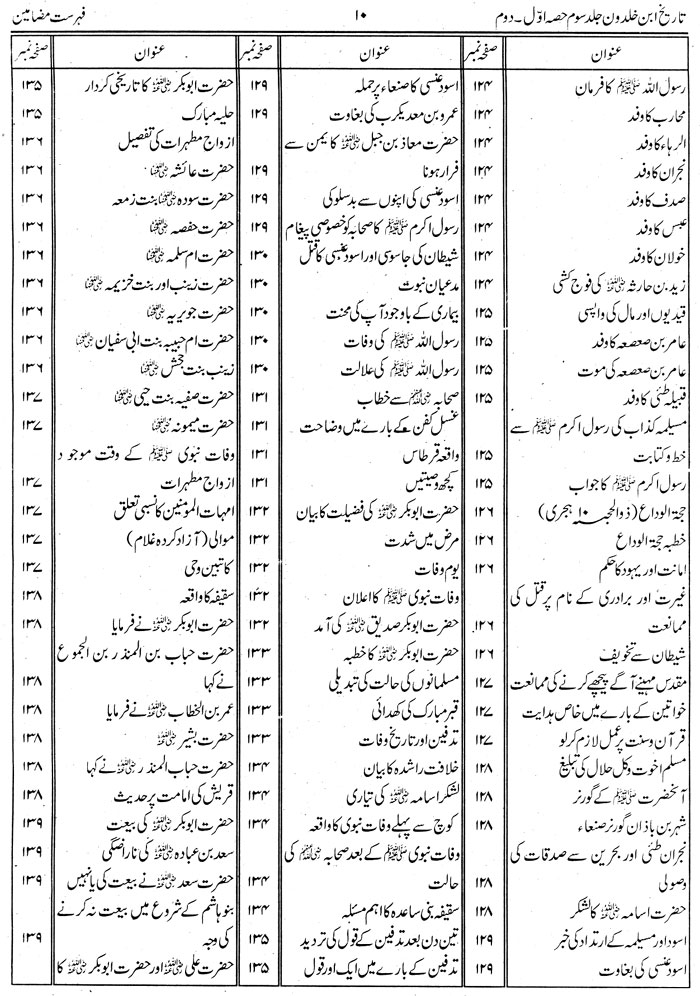 تاریخ ابن خلدون جلد سوم حصہ اوّل۔دوم ۱۰ فہرست مضامین
عنوان صفحہ نمبر
رسول اللہ ﷺ کا فرمان ۱۲۴
محارب کا وفد ۱۲۴
الرہاء کا وفد ۱۲۴
نجران کا وفد ۱۲۴
صدف کا وفد ۱۲۴
عبس کا وفد ۱۲۴
خولان کا وفد ۱۲۴
زید بن حارثہ ؓ کی فوج کشی ۱۲۴
قیدیوں اور مال کی واپسی ۱۲۵
عامر بن صعصعہ کا وفد ۱۲۵
عامر بن صعصعہ کی موت ۱۲۵
قبیلہ طئی کا وفد ۱۲۵
مسیلمہ کذاب کی رسول اکرم ﷺ سے
خط و کتابت ۱۲۵
رسول اکرم ﷺ کا جواب ۱۲۵
حجۃ الوداع (ذوالحجہ ۱۰ ہجری) ۱۲۶
خطبہ حجۃ الوداع ۱۲۶
امانت اور یہود کا حکم ۱۲۶
غیرت اور برادری کے نام پر قتل کی
ممانعت ۱۲۶
شیطان سے تخویف ۱۲۶
مقدس مہینے آگے پیچھے کرنے کی ممانعت ۱۲۷
خواتین کے بارے میں خاص ہدایت ۱۲۷
قرآن و سنت پر عمل لازم کر لو ۱۲۷
مسلم اخوت و کل حلال کی تبلیغ ۱۲۸
آنحضرت ﷺ کے گورنر
شہر بن باذان گورنر صنعاء ۱۲۸
نجران طئی اور بحرین سے صدقات کی
وصولی ۱۲۸
حضرت اسامہ ؓ کا لشکر ۱۲۸
اسود اور مسیلمہ کے ارتداد کی خبر ۱۲۹
اسود عنسی کی بغاوت ۱۲۹
عنوان صفحہ نمبر
اسود عنسی کا صنعاء پر حملہ ۱۲۹
عمرو بن معدیکرب کی بغاوت ۱۲۹
حضرت معاذ بن جبل ؓ کا یمن سے
فرار ہونا ۱۲۹
اسود عنسی کی اپنوں سے بدسلوکی ۱۲۹
رسول اکرم ﷺ کا صحابہ کو خصوصی پیغام ۱۲۹
شیطان کی جاسوسی اور اسود عنسی کا قتل ۱۳۰
مدعیان نبوت ۱۳۰
بیماری کے باوجود آپ کی محنت ۱۳۰
رسول اللہ ﷺ کی وفات ۱۳۰
رسول اللہ ﷺ کی علالت ۱۳۰
صحابہ ؓ سے خطاب ۱۳۱
غسل کفن کے بارے میں وضاحت ۱۳۱
واقعہ قرطاس ۱۳۱
کچھ وصیتیں ۱۳۱
حضرت ابوبکر ؓ کی فضیلت کا بیان ۱۳۲
مرض میں شدت ۱۳۲
یوم وفات ۱۳۲
وفات نبوی ﷺ کا اعلان ۱۳۲
حضرت ابوبکر صدیق ؓ کی آمد ۱۳۲
حضرت ابوبکر ؓ کا خطبہ ۱۳۳
مسلمانوں کی حالت کی تبدیلی ۱۳۳
قبر مبارک کی کھدائی ۱۳۳
تدفین اور تاریخ وفات ۱۳۳
خلافت راشدہ کا بیان ۱۳۴
لشکر اسامہ ؓ کی تیاری ۱۳۴
کوچ سے پہلے وفات نبوی کا واقعہ ۱۳۴
وفات نبوی ﷺ کے بعد صحابہ ؓ کی
حالت ۱۳۴
سقیفہ بنی ساعدہ کا اہم مسئلہ ۱۳۴
تین دن بعد تدفین کے قول کی تردید ۱۳۵
تدفین کے بارے میں ایک اور قول ۱۳۵
عنوان صفحہ نمبر
حضرت ابوبکر ؓ کا تاریخی کردار ۱۳۵
حلیہ مبارک ۱۳۵
ازواج مطہرات کی تفصیل ۱۳۶
حضرت عائشہ ؓ ۱۳۶
حضرت سودہ ؓ بنت زمعہ ۱۳۶
حضرت حفصہ ؓ ۱۳۶
حضرت ام سلمہ ؓ ۱۳۶
حضرت زینب اور بنت خزیمہ ؓ ۱۳۶
حضرت جویریہ ؓ ۱۳۶
حضرت ام حبیبہ بنت ابی سفیان ؓ ۱۳۶
زینب بنت جحش ؓ ۱۳۶
حضرت صفیہ بنت حیی ؓ ۱۳۷
حضرت میمونہ ؓ ۱۳۷
وفات نبوی ﷺ کے وقت موجود
ازواج مطہرات ۱۳۷
امہات المؤمنین کا نسبی تعلق ۱۳۷
موالی (آزاد کردہ غلام) ۱۳۷
کاتبین وحی ۱۳۷
سقیفہ کا واقعہ ۱۳۸
حضرت ابوبکر ؓ نے فرمایا ۱۳۸
حضرت حباب بن المنذر بن الجموع
نے کہا ۱۳۸
عمر بن الخطاب ؓ نے فرمایا ۱۳۸
حضرت بشیر ؓ ۱۳۸
حضرت حباب المنذر ؓ نے کہا ۱۳۸
قریش کی امامت پر حدیث ۱۳۸
حضرت ابوبکر ؓ کی بیعت ۱۳۹
سعد بن عبادہ ؓ کی ناراضگی ۱۳۹
حضرت سعد ؓ نے بیعت کی یا نہیں ۱۳۹
بنو ہاشم کے شروع میں بیعت نہ کرنے
کی وجہ ۱۳۹
حضرت علی ؓ اور حضرت ابوبکر ؓ کا